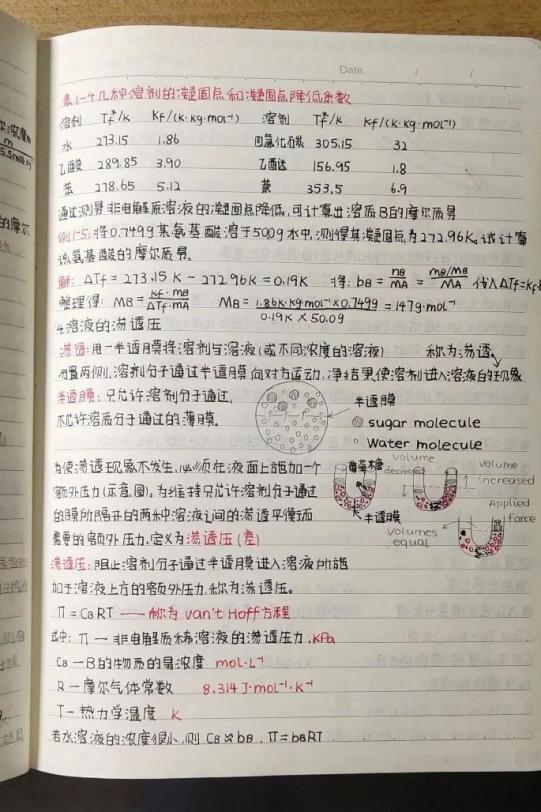 Date. / /
表1-4 几种溶剂的凝固点和凝固点降低系数
溶剂 Tf*/K Kf/(K·kg·mol⁻¹) 溶剂 Tf*/K Kf/(K·kg·mol⁻¹)
水 273.15 1.86 四氯化碳 305.15 32
乙酸 289.85 3.90 乙醚 156.95 1.8
苯 278.65 5.12 萘 353.5 6.9
通过测量非电解质溶液的凝固点降低,可计算出溶质B的摩尔质量
例1-5:将0.749g某氨基酸溶于500g水中,测得其凝固点为272.96K,试计算
该氨基酸的摩尔质量。
解: ΔTf = 273.15 K - 272.96K = 0.19K 将: bB = nB/mA = mB/MB/mA 代入ΔTf=Kf·b
整理得: MB = Kf·mB/ΔTf·mA MB = 1.86K·kg·mol⁻¹×0.749g/0.19K×50.0g = 147g·mol⁻¹
4.溶液的渗透压
渗透:用一半透膜将溶剂与溶液(或不同浓度的溶液) 称为渗透
置两侧,溶剂分子通过半透膜向对方运动,净结果使溶剂进入溶液的现象
半透膜:只允许溶剂分子通过, 半透膜
不允许溶质分子通过的薄膜。 sugar molecule
Water molecule
为使渗透现象不发生,必须在液面上施加一个
葡萄糖 volume decrease volume increased
额外压力(示意图)。为维持只允许溶剂分子通过
的膜所隔开的两种溶液之间的渗透平衡而 半透膜 Applied force
需要的额外压力,定义为渗透压(差) Volumes equal
渗透压:阻止溶剂分子通过半透膜进入溶液所施
加于溶液上方的额外压力,称为渗透压。
Π = CBRT —— 称为 van't Hoff方程
式中: Π — 非电解质稀溶液的渗透压力,kPa
CB — B的物质的量浓度 mol·L⁻¹
R — 摩尔气体常数 8.314 J·mol⁻¹·K⁻¹
T — 热力学温度 K
若水溶液的浓度很小,则 CB≈bB , Π = bBRT